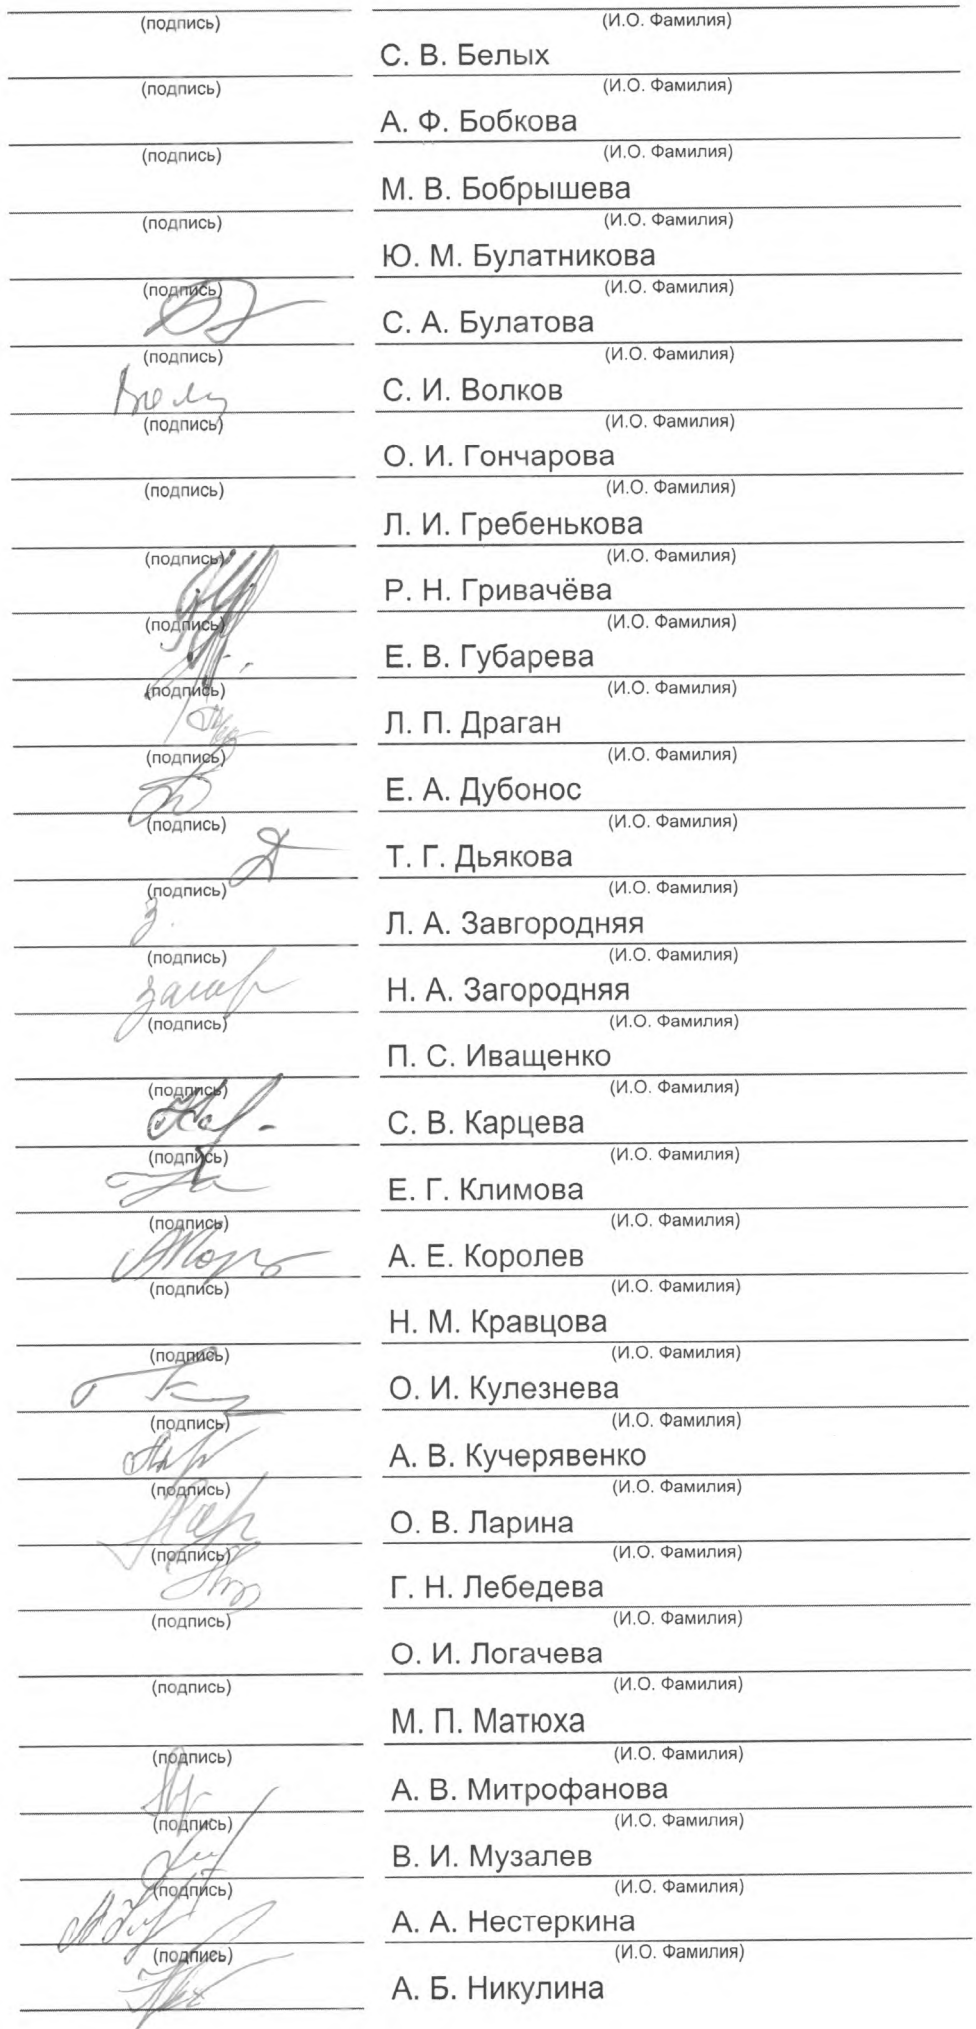 (подпись) (И.О. Фамилия)
С. В. Белых
(подпись) (И.О. Фамилия)
А. Ф. Бобкова
(подпись) (И.О. Фамилия)
М. В. Бобрышева
(подпись) (И.О. Фамилия)
Ю. М. Булатникова
(подпись) (И.О. Фамилия)
С. А. Булатова
(подпись) (И.О. Фамилия)
С. И. Волков
(подпись) (И.О. Фамилия)
О. И. Гончарова
(подпись) (И.О. Фамилия)
Л. И. Гребенькова
(подпись) (И.О. Фамилия)
Р. Н. Гривачёва
(подпись) (И.О. Фамилия)
Е. В. Губарева
(подпись) (И.О. Фамилия)
Л. П. Драган
(подпись) (И.О. Фамилия)
Е. А. Дубонос
(подпись) (И.О. Фамилия)
Т. Г. Дьякова
(подпись) (И.О. Фамилия)
З. Л. А. Завгородняя
(подпись) (И.О. Фамилия)
Н. А. Загородняя
(подпись) (И.О. Фамилия)
П. С. Иващенко
(подпись) (И.О. Фамилия)
С. В. Карцева
(подпись) (И.О. Фамилия)
Е. Г. Климова
(подпись) (И.О. Фамилия)
А. Е. Королев
(подпись) (И.О. Фамилия)
Н. М. Кравцова
(подпись) (И.О. Фамилия)
О. И. Кулезнева
(подпись) (И.О. Фамилия)
А. В. Кучерявенко
(подпись) (И.О. Фамилия)
О. В. Ларина
(подпись) (И.О. Фамилия)
Г. Н. Лебедева
(подпись) (И.О. Фамилия)
О. И. Логачева
(подпись) (И.О. Фамилия)
М. П. Матюха
(подпись) (И.О. Фамилия)
А. В. Митрофанова
(подпись) (И.О. Фамилия)
В. И. Музалев
(подпись) (И.О. Фамилия)
А. А. Нестеркина
(подпись) (И.О. Фамилия)
А. Б. Никулина